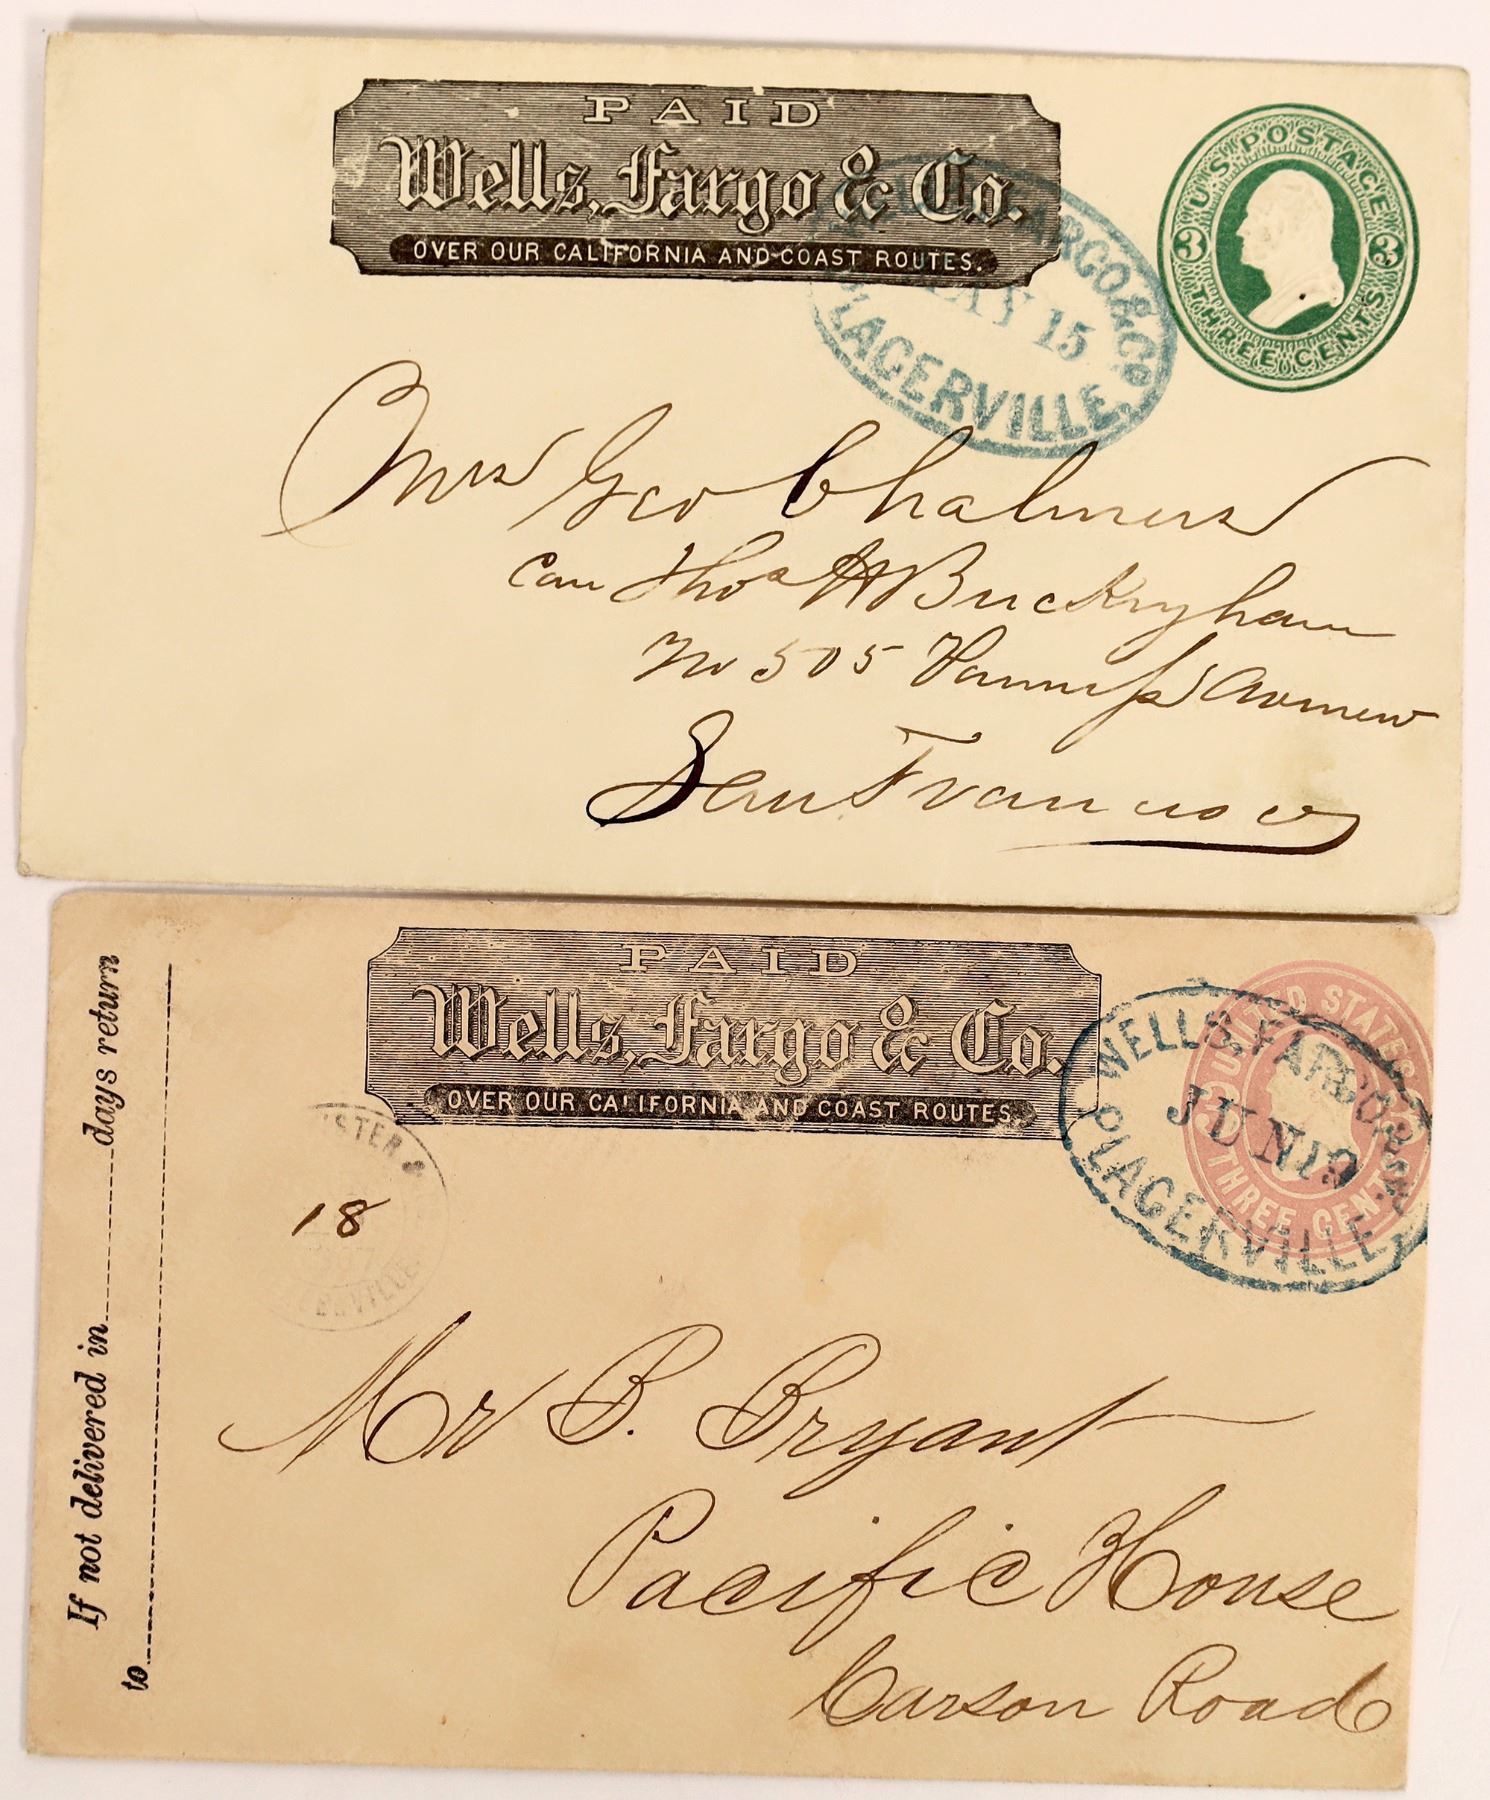 PAID
Wells, Fargo & Co.
OVER OUR CALIFORNIA AND COAST ROUTES.
WELLS, FARGO & Co
MAY 15
PLACERVILLE
U.S. POSTAGE
3 3
THREE CENTS
Mrs Geo Chalmers
Care Thos H Buckingham
No 505 Vanness Avenue
San Francisco
PAID
Wells, Fargo & Co.
OVER OUR CALIFORNIA AND COAST ROUTES.
WELLS, FARGO
JUN 19
PLACERVILLE
UNITED STATES
3 3
THREE CENTS
If not delivered in days return
to
18
Mr B. Bryant
Pacific House
Carson Road